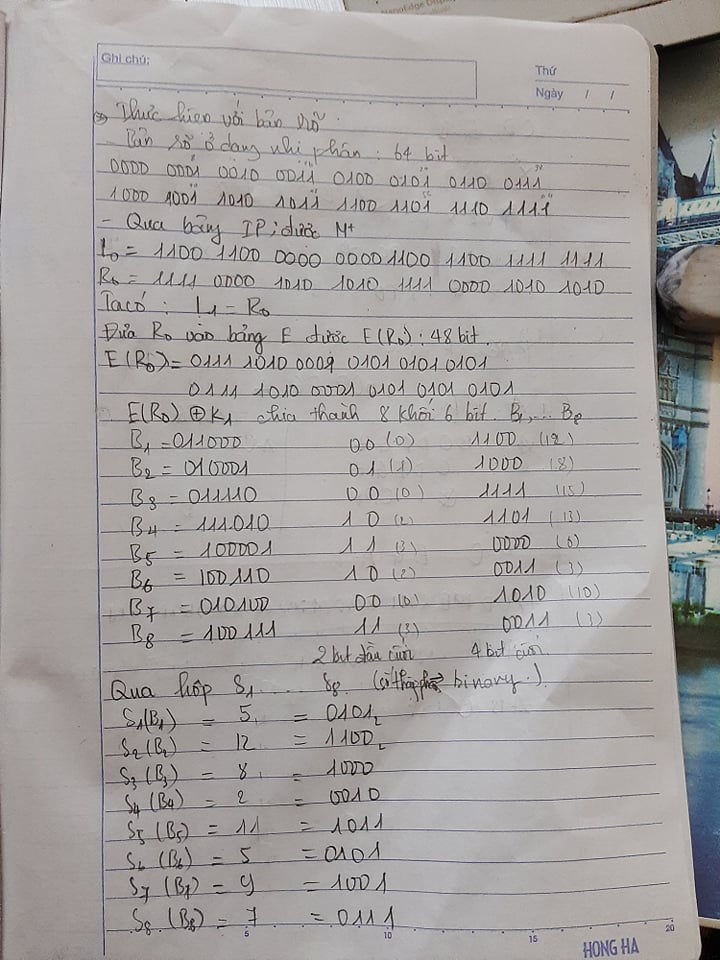 NanoEdge Display
Ghi chú:
Thứ
Ngày / /
Thực hiện với bản rõ
- Bản rõ ở dạng nhị phân : 64 bit
0000 0001 0010 0011 0100 0101 0110 0111
1000 1001 1010 1011 1100 1101 1110 1111
- Qua bảng IP ; được M+
L0 = 1100 1100 0000 0000 1100 1100 1111 1111
R0 = 1111 0000 1010 1010 1111 0000 1010 1010
Ta có : L1 = R0
Đưa R0 vào bảng E được E(R0) : 48 bit.
E(R0) = 0111 1010 0001 0101 0101 0101
0111 1010 0001 0101 0101 0101
E(R0) ⊕ K1 chia thành 8 khối 6 bit. B1 ... B8
B1 = 011000 00 (0) 1100 (12)
B2 = 010001 01 (1) 1000 (8)
B3 = 011110 00 (0) 1111 (15)
B4 = 111010 10 (2) 1101 (13)
B5 = 100001 11 (3) 0000 (0)
B6 = 100110 10 (2) 0011 (3)
B7 = 010100 00 (0) 1010 (10)
B8 = 100111 11 (3) 0011 (3)
2 bit đầu cuối 4 bit cuối
Qua hộp S1 .... S8 (số thập phân binary.)
S1(B1) = 5 = 0101
S2(B2) = 12 = 1100
S3(B3) = 8 = 1000
S4(B4) = 2 = 0010
S5(B5) = 11 = 1011
S6(B6) = 5 = 0101
S7(B7) = 9 = 1001
S8(B8) = 7 = 0111
5 10 15 20
HONG HA